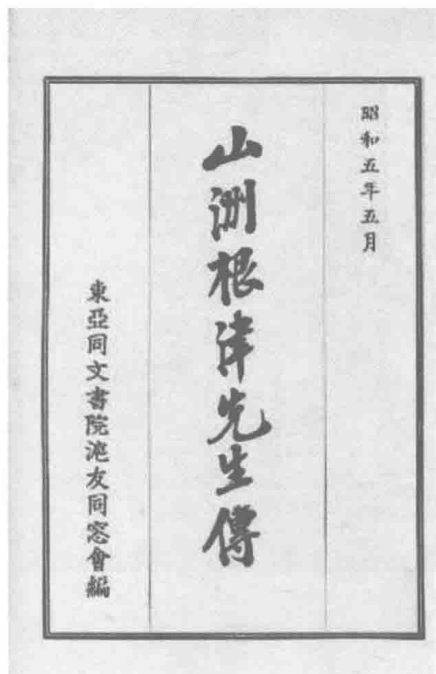 昭和五年五月
山洲根津先生傳
東亞同文書院滬友同窓會編